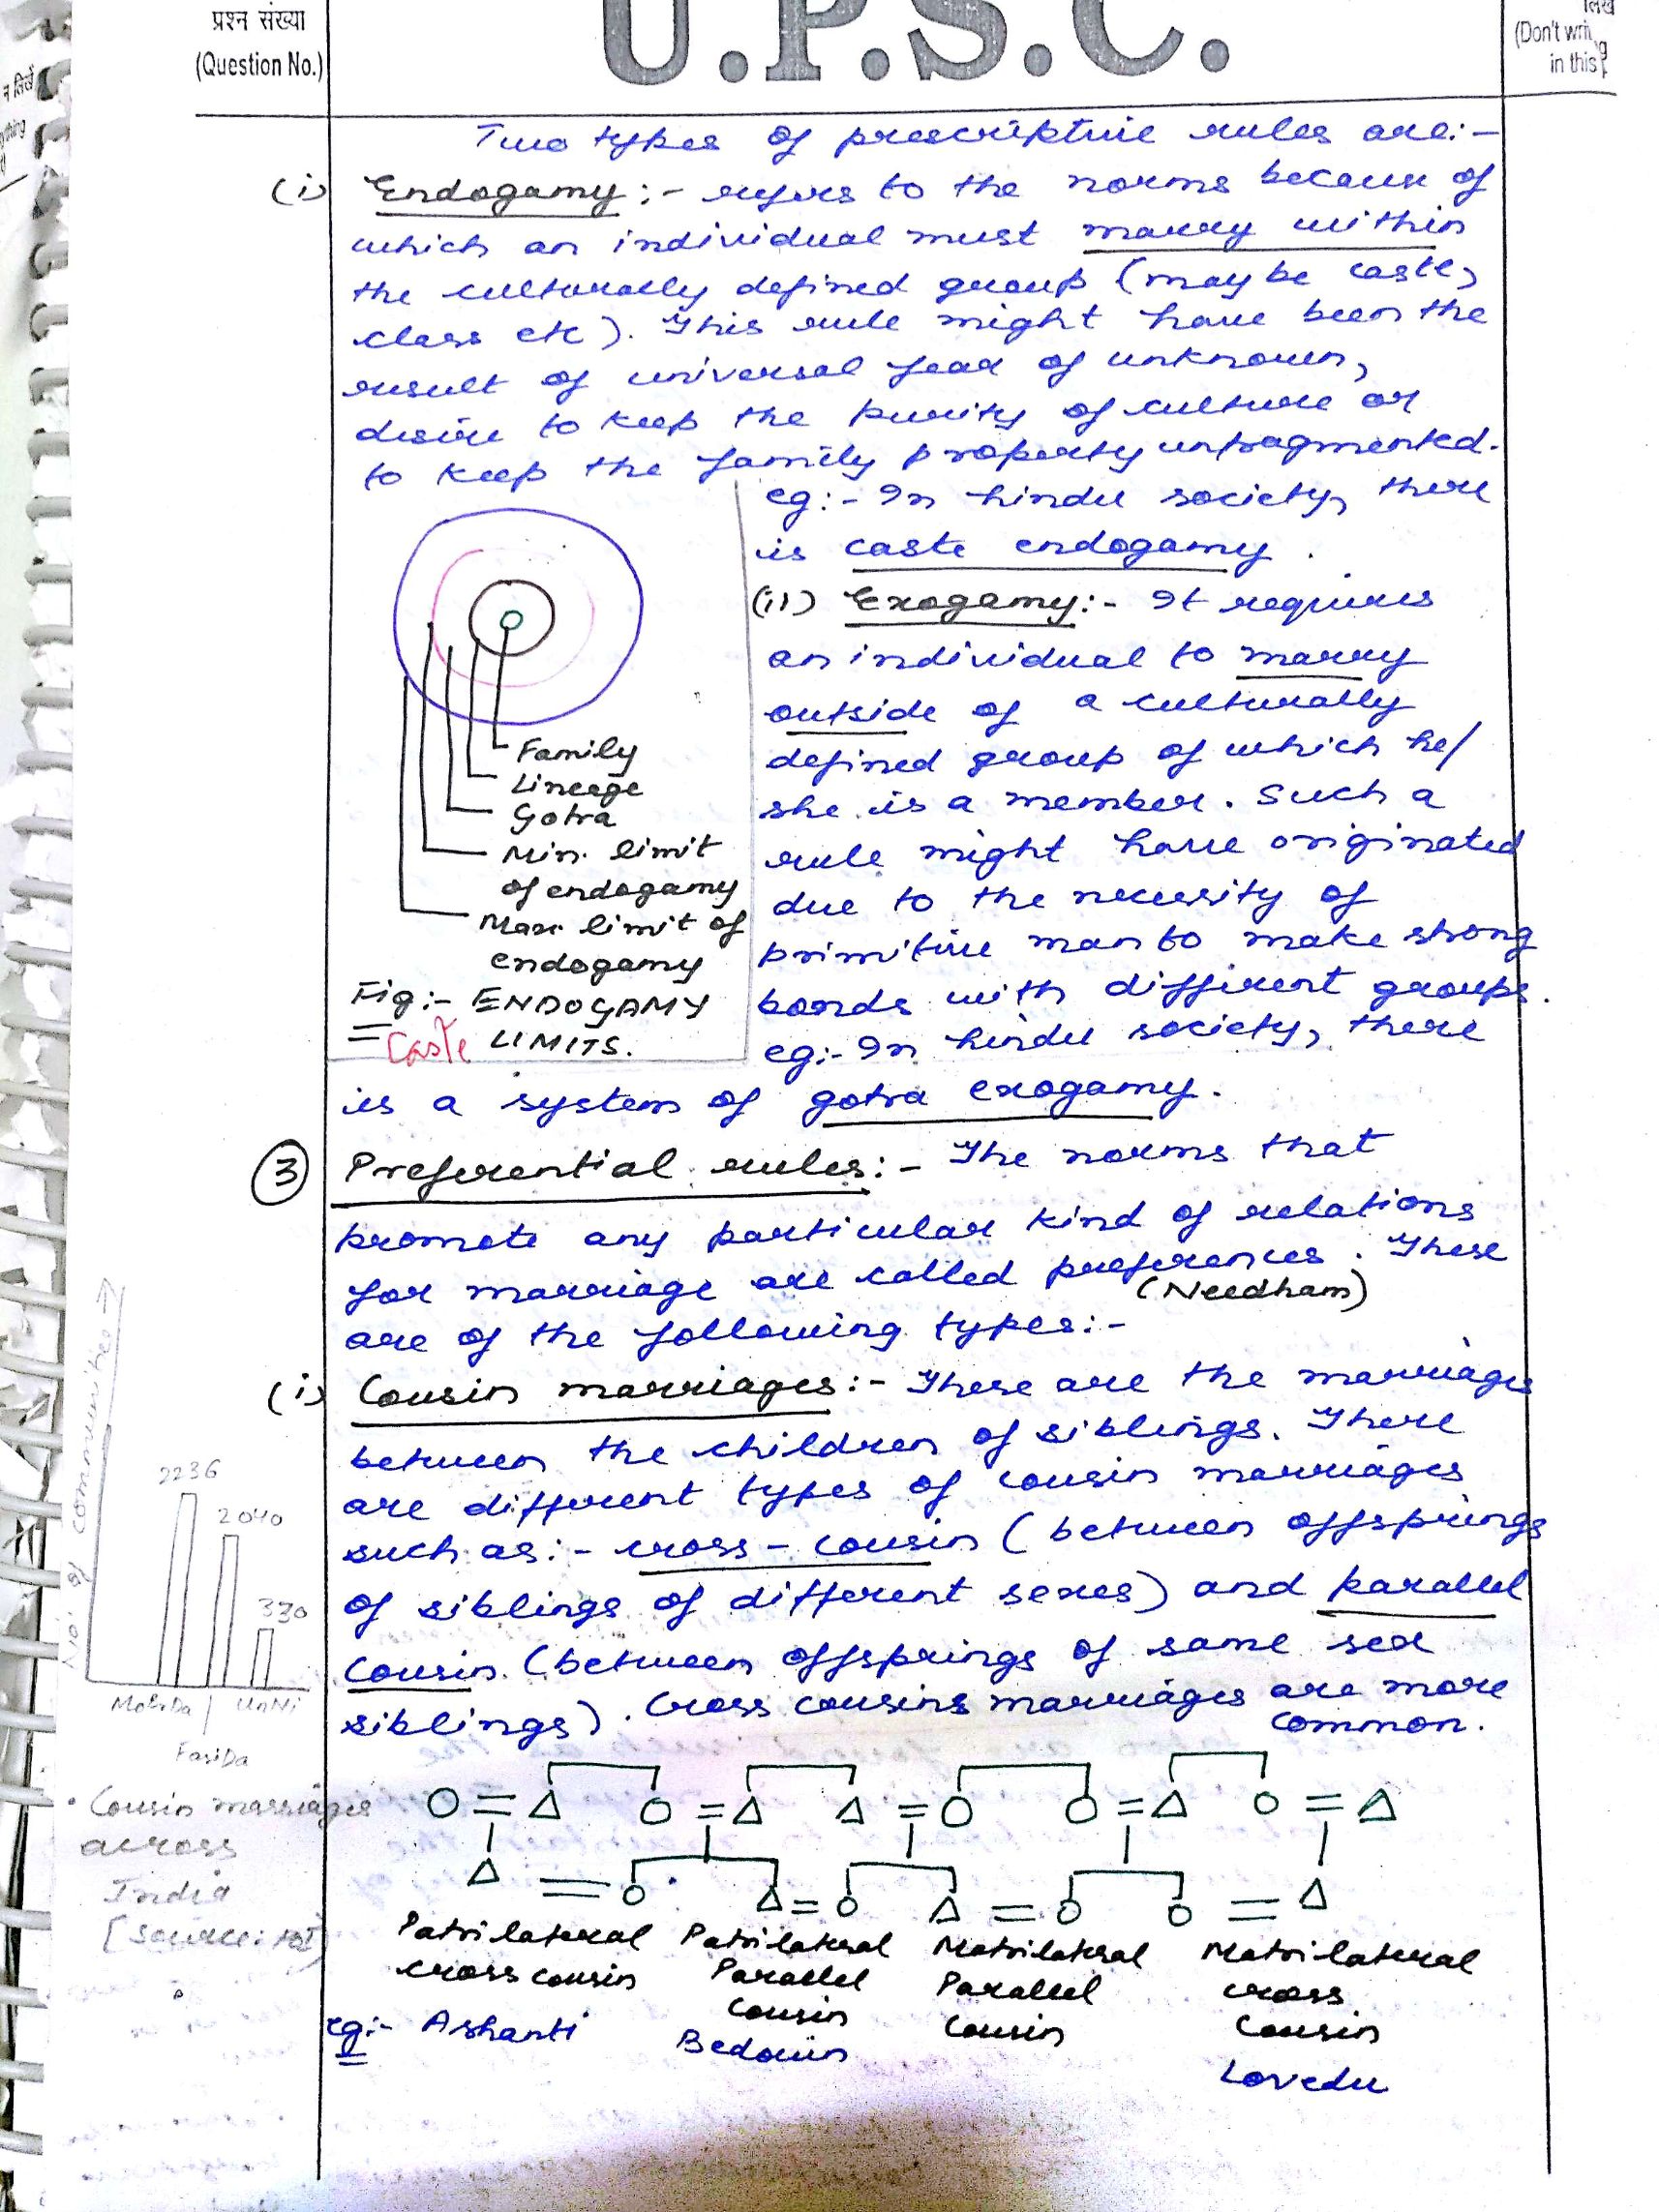 प्रश्न संख्या
(Question No.)
U.P.S.C.
(Don't
in this
Two types of prescriptive rules are:-
(i) Endogamy :- refers to the norms because of
which an individual must marry within
the culturally defined group (may be caste,
class etc). This rule might have been the
result of universal fear of unknown,
desire to keep the purity of culture or
to keep the family property unfragmented.
eg:- In hindu society, there
is caste endogamy.
(ii) Exogamy:- It requires
an individual to marry
outside of a culturally
defined group of which he/
she is a member. Such a
rule might have originated
due to the necessity of
primitive man to make strong
bonds with different groups.
eg:- In hindu society, there
is a system of gotra exogamy.
Family
Lineage
Gotra
Min. limit
of endogamy
Max limit of
endogamy
Fig:- ENDOGAMY
= Caste LIMITS.
③ Preferential rules:- The norms that
promote any particular kind of relations
for marriage are called preferences. These
(Needham)
are of the following types:-
(i) Cousin marriages:- These are the marriages
between the children of siblings. There
are different types of cousin marriages
such as:- cross-cousin (between offsprings
of siblings of different sexes) and parallel
cousin (between offsprings of same sex
siblings). Cross cousins marriages are more
common.
No. of communities
2236
2040
330
MoBrDa
UnNi
FaSiDa
• Cousin marriages
across
India
[Source:
Patrilateral
cross cousin
Patrilateral
Parallel
Cousin
Matrilateral
Parallel
Cousin
Matrilateral
cross
Cousin
eg:- Ashanti
Bedouin
Lovedu